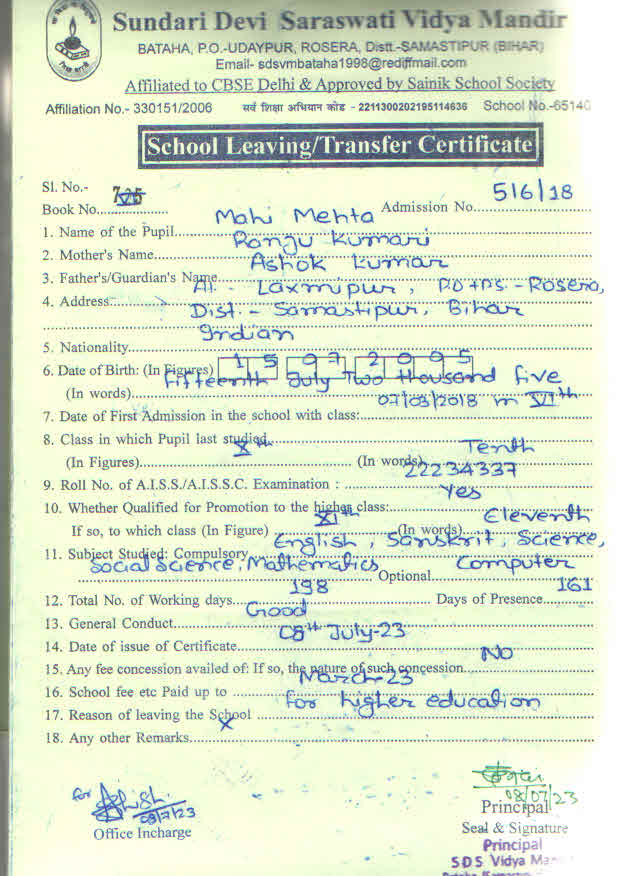 Sundari Devi Saraswati Vidya Mandir
BATAHA, P.O.-UDAYPUR, ROSERA, Distt.-SAMASTIPUR (BIHAR)
Email- sdsvmbataha1998@rediffmail.com
Affiliated to CBSE Delhi & Approved by Sainik School Society
Affiliation No.- 330151/2006 सर्व शिक्षा अभियान कोड - 2211300202195114636 School No.-65140
School Leaving/Transfer Certificate
Sl. No.- 725
Book No. Admission No. 516/18
1. Name of the Pupil Mahi Mehta
2. Mother's Name Ranju Kumari
3. Father's/Guardian's Name Ashok Kumar
4. Address At - Laxmipur, PO+PS - Rosera,
Dist. - Samastipur, Bihar
5. Nationality Indian
6. Date of Birth: (In Figures) 15 07 2005
(In words) Fifteenth July Two thousand five
7. Date of First Admission in the school with class: 07/03/2018 in VIth
8. Class in which Pupil last studied
(In Figures) Xth (In words) Tenth
9. Roll No. of A.I.S.S./A.I.S.S.C. Examination : 22234337
10. Whether Qualified for Promotion to the higher class: Yes
If so, to which class (In Figure) XIth (In words) Eleventh
11. Subject Studied: Compulsory English, Sanskrit, Science,
Social Science, Mathematics Optional Computer
12. Total No. of Working days 198 Days of Presence 161
13. General Conduct Good
14. Date of issue of Certificate 08th July-23
15. Any fee concession availed of: If so, the nature of such concession No
16. School fee etc Paid up to March-23
17. Reason of leaving the School for higher education
18. Any other Remarks X
for Ashish
08/7/23
Office Incharge
08/07/23
Principal
Seal & Signature
Principal
SDS Vidya